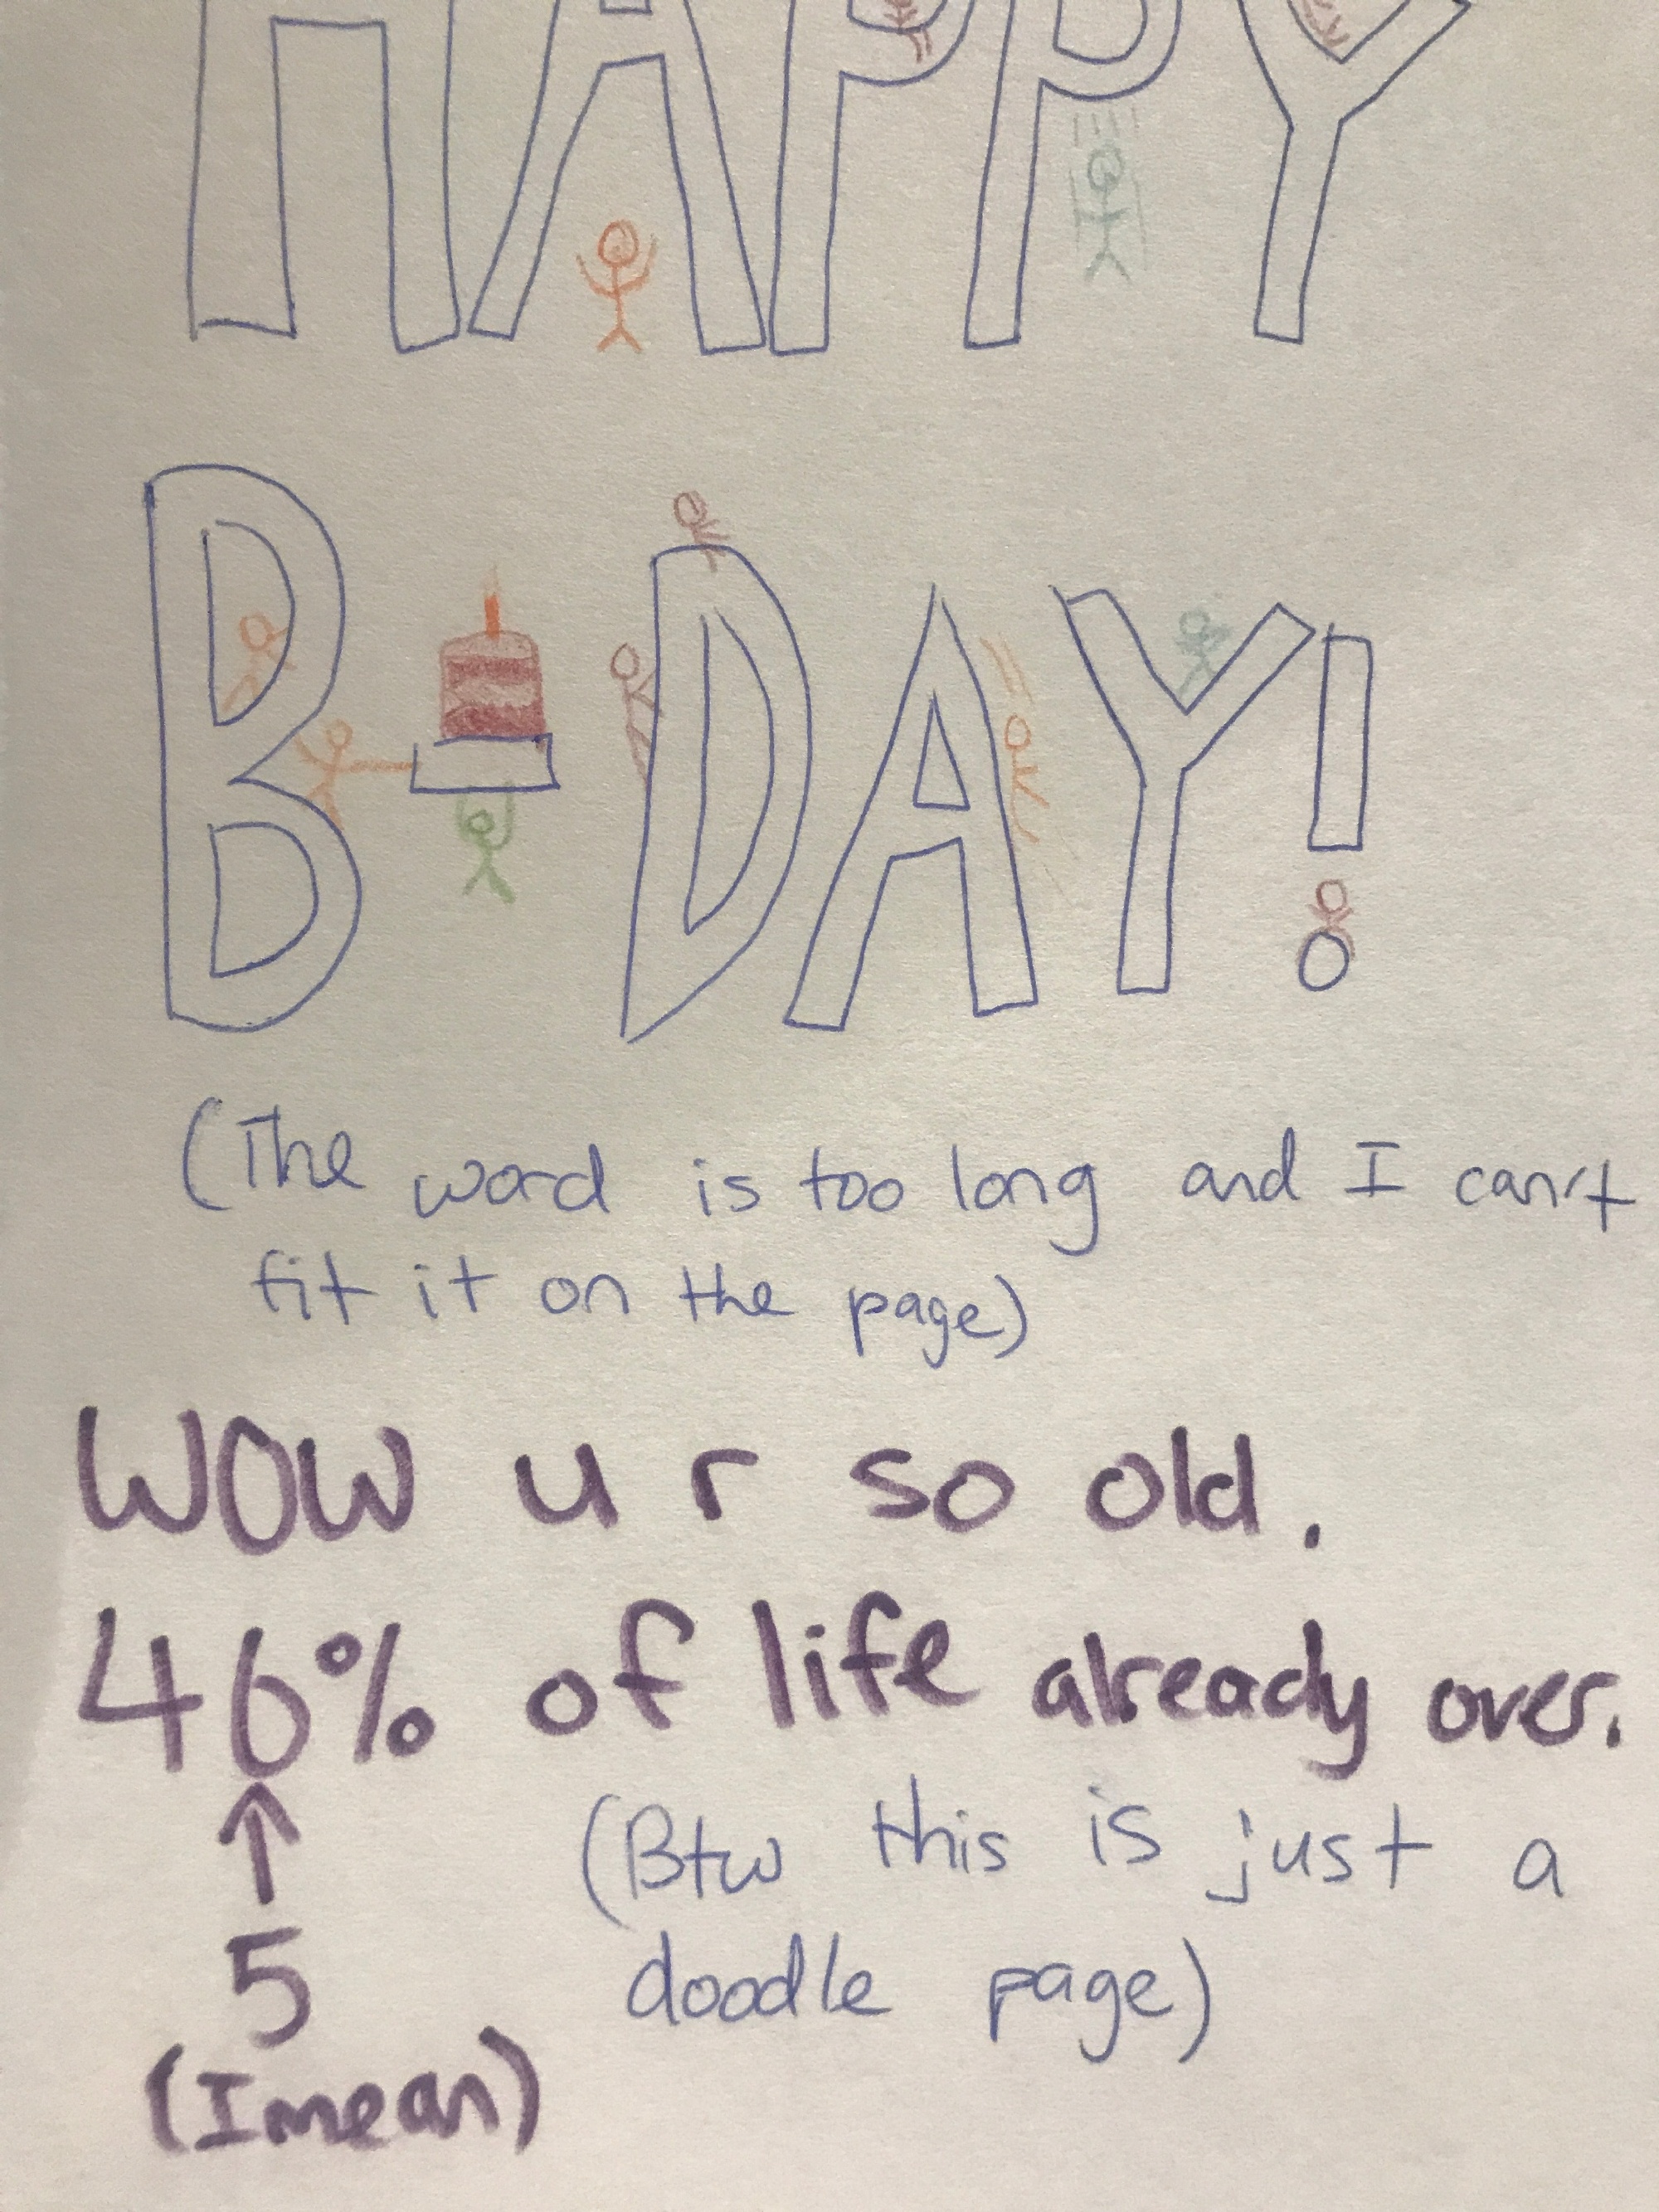 HAPPY
B-DAY!
(The word is too long and I can't
fit it on the page)
WOW u r so old.
46% of life already over.
↑
5
(I mean)
(Btw this is just a
doodle page)